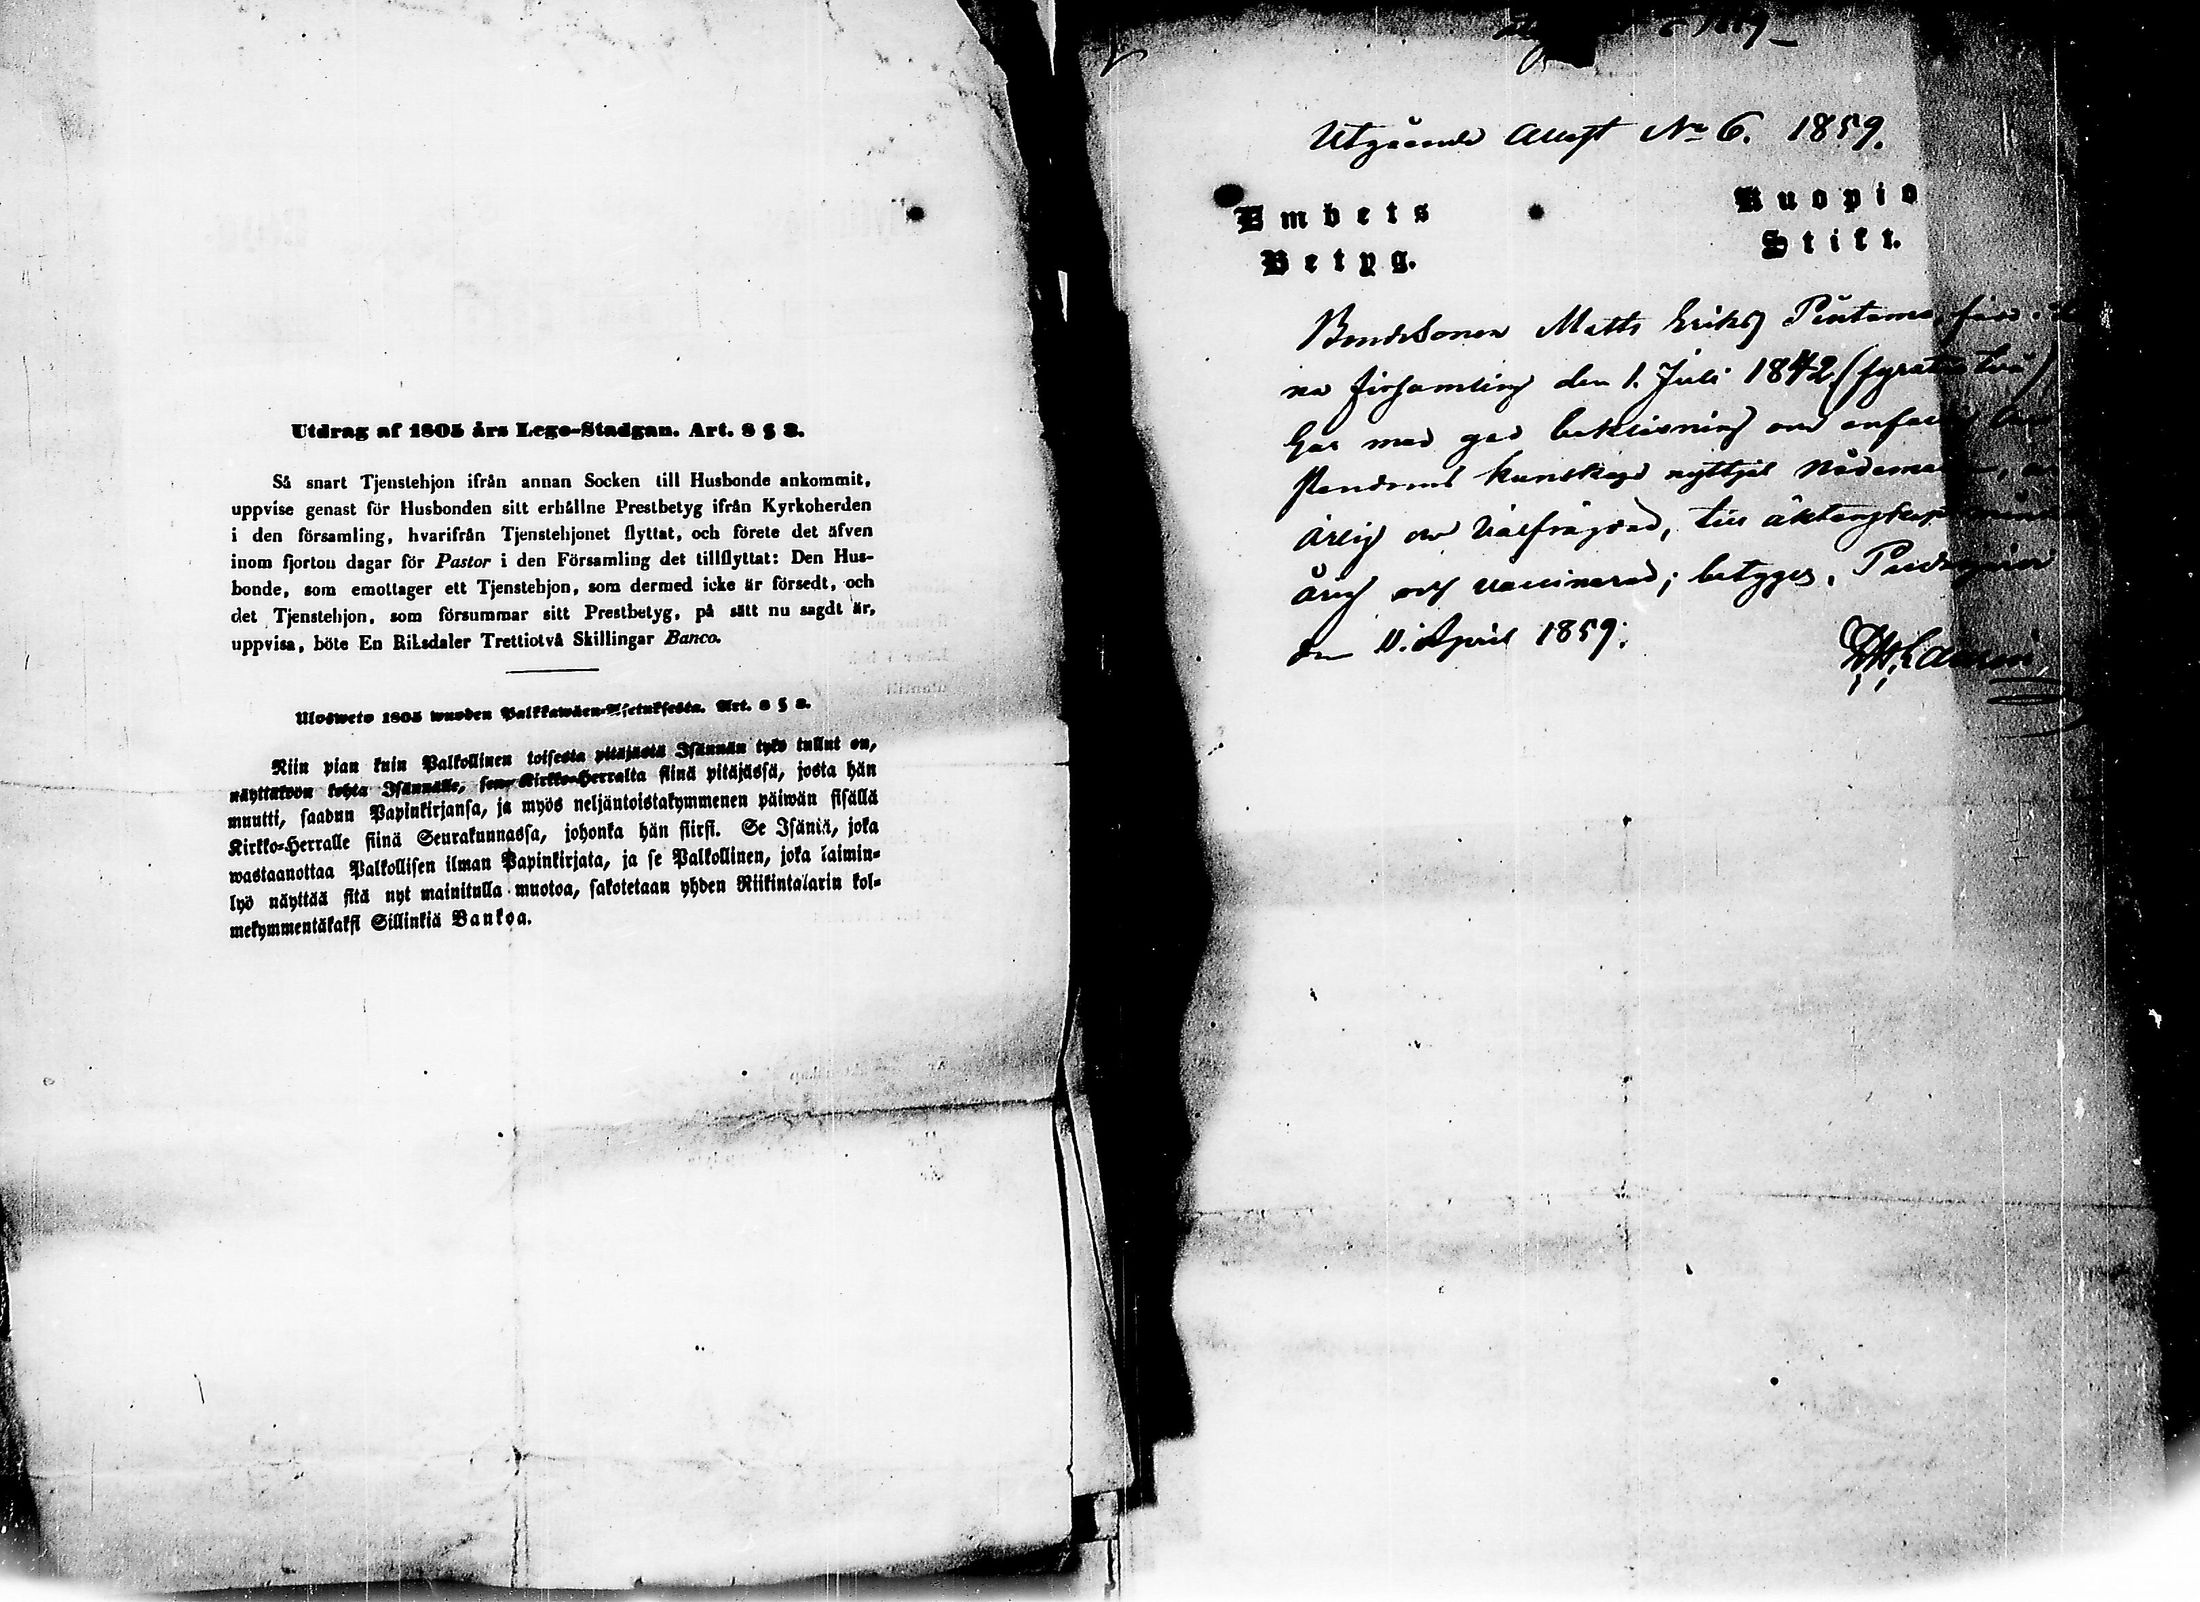 Utdrag af 1805 års Lego-Stadgan. Art. 8 § 2.
Så snart Tjenstehjon ifrån annan Socken till Husbonde ankommit,
uppvise genast för Husbonden sitt erhållne Prestbetyg ifrån Kyrkoherden
i den församling, hvarifrån Tjenstehjonet flyttat, och förete det äfven
inom fjorton dagar för Pastor i den Församling det tillflyttat: Den Hus-
bonde, som emottager ett Tjenstehjon, som dermed icke är försedt, och
det Tjenstehjon, som försummar sitt Prestbetyg, på sätt nu sagdt är,
uppvisa, böte En Riksdaler Trettiotvå Skillingar Banco.
Ulosweto 1805 wuoden Palkkawäen-Asetuksesta. Art. 8 § 2.
Niin pian kuin Palkollinen toisesta pitäjästä Isännän tykö tullut on,
näyttäköön kohta Isännälle, sen Kirkko-Herralta siinä pitäjässä, josta hän
muutti, saadun Papinkirjansa, ja myös neljäntoistakymmenen päiwän sisällä
Kirkko-Herralle siinä Seurakunnassa, johonka hän siirsi. Se Isäntä, joka
wastaanottaa Palkollisen ilman Papinkirjata, ja se Palkollinen, joka laimin-
lyö näyttää sitä nyt mainitulla muotoa, sakotetaan yhden Riikintalarin kol-
mekymmentäkaksi Sillinkiä Bankoa.
Utgående Attest No 6. 1859.
Embets Kuopio
Betyg. Stift.
Bondesonen Matts Eriks Födde i
na församling den 1. Juli 1842 (fyratiotvå)
har med god
kunskap nyttjat nådemed
ärlig och välfrägdad, till äktenskap
och vaccinerad; betygas. Pudasjärvi
den 11. April 1859.